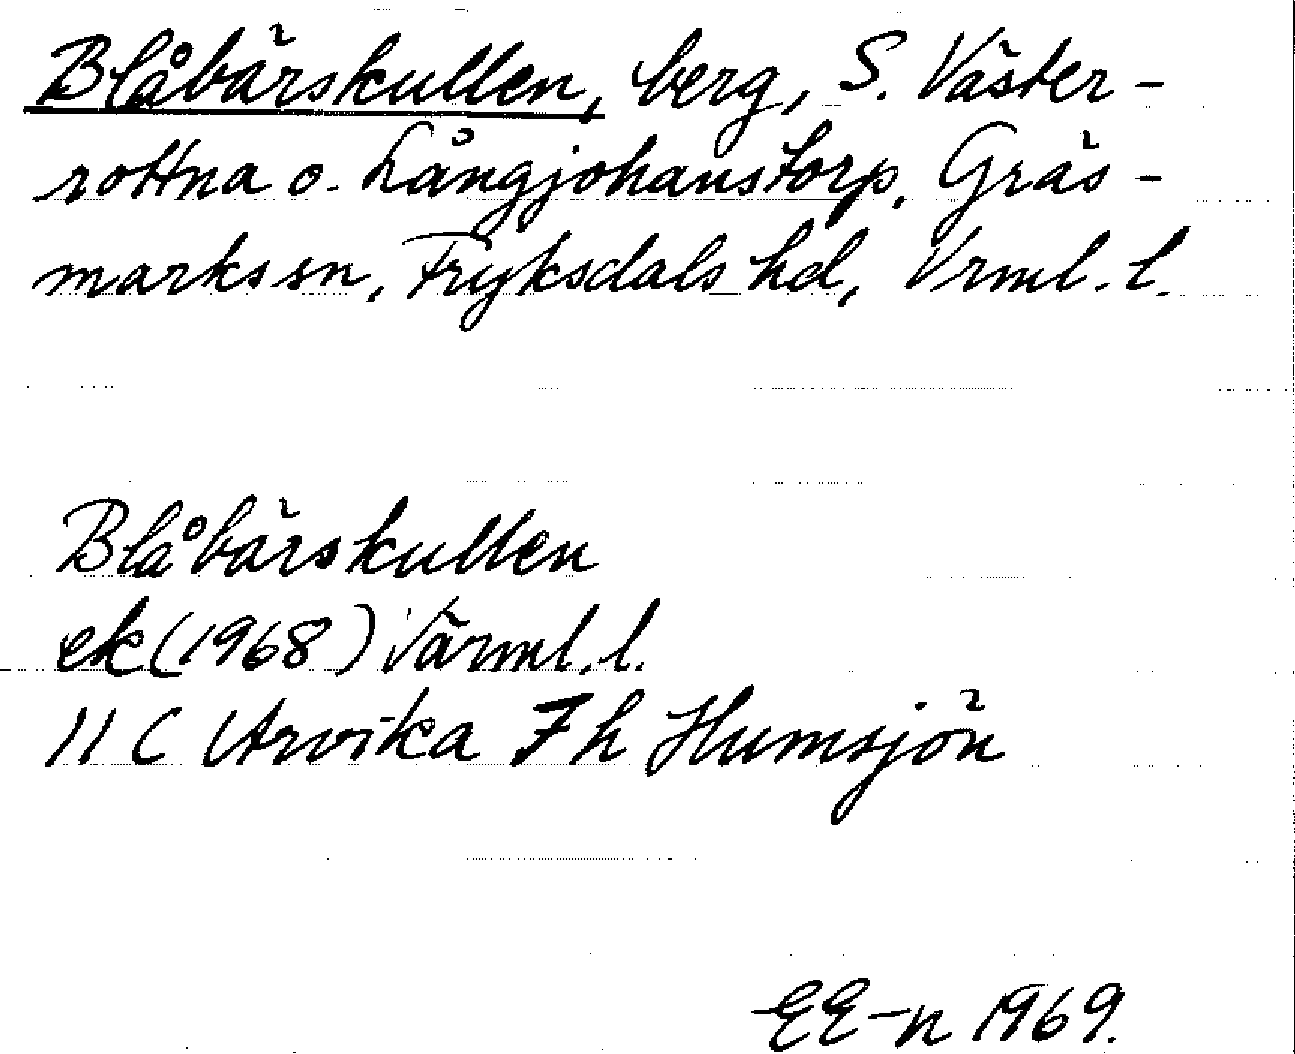 Blåbärskullen, berg, S. Väster-
rottna o. Långjohanstorp, Gräs-
marks sn, Fryksdals hd, Vrml. l.
Blåbärskullen
ek (1968) Värml. l.
11 C Arvika 7 h Humsjön
EE-n 1969.